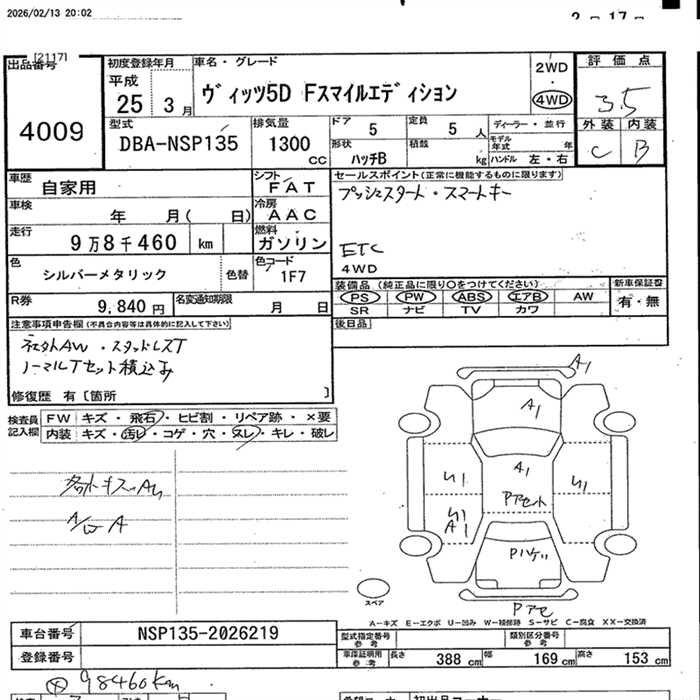 2026/02/13 20:02
2 17
[2117]
出品番号
4009
初度登録年月
平成
25 3月
車名・グレード
ヴィッツ5D Fスマイルエディション
2WD
・
4WD
評価点
3.5
外装 内装
C B
型式
DBA-NSP135
排気量
1300
cc
ドア
5
定員
5 人
形状
ハッチB
積載
kg
ディーラー・並行
モデル年式 年
ハンドル 左・右
車歴
自家用
シフト
FAT
車検
年 月( 日)
冷房
AAC
走行
9万8千460 km
燃料
ガソリン
色
シルバーメタリック
色替
色コード
1F7
R券
9,840 円
名変通知期限
月 日
セールスポイント(正常に機能するものに限ります)
プッシュスタート・スマートキー
ETC
4WD
装備品(純正品に限り○をつけてください)
PS PW ABS エアB AW
SR ナビ TV カワ
新車保証書
有・無
後日品
注意事項申告欄(不具合内容等は具体的に記入して下さい)
社外AW・スタッドレスT
ノーマルTセット積込み
修復歴 有〔箇所 〕
検査員
記入欄
FW キズ・飛石・ヒビ割・リペア跡・×要
内装 キズ・汚レ・コゲ・穴・ヌレ・キレ・破レ
A1
A1
A1
U1
U1
U1
A1
スペア
A-キズ E-エクボ U-凹み W-補修跡 S-サビ C-腐食 XX-交換済
車台番号
NSP135-2026219
登録番号
型式指定番号
参考
類別区分番号
参考
車庫証明用
参考
長さ 388 cm 幅 169 cm 高さ 153 cm
98460km